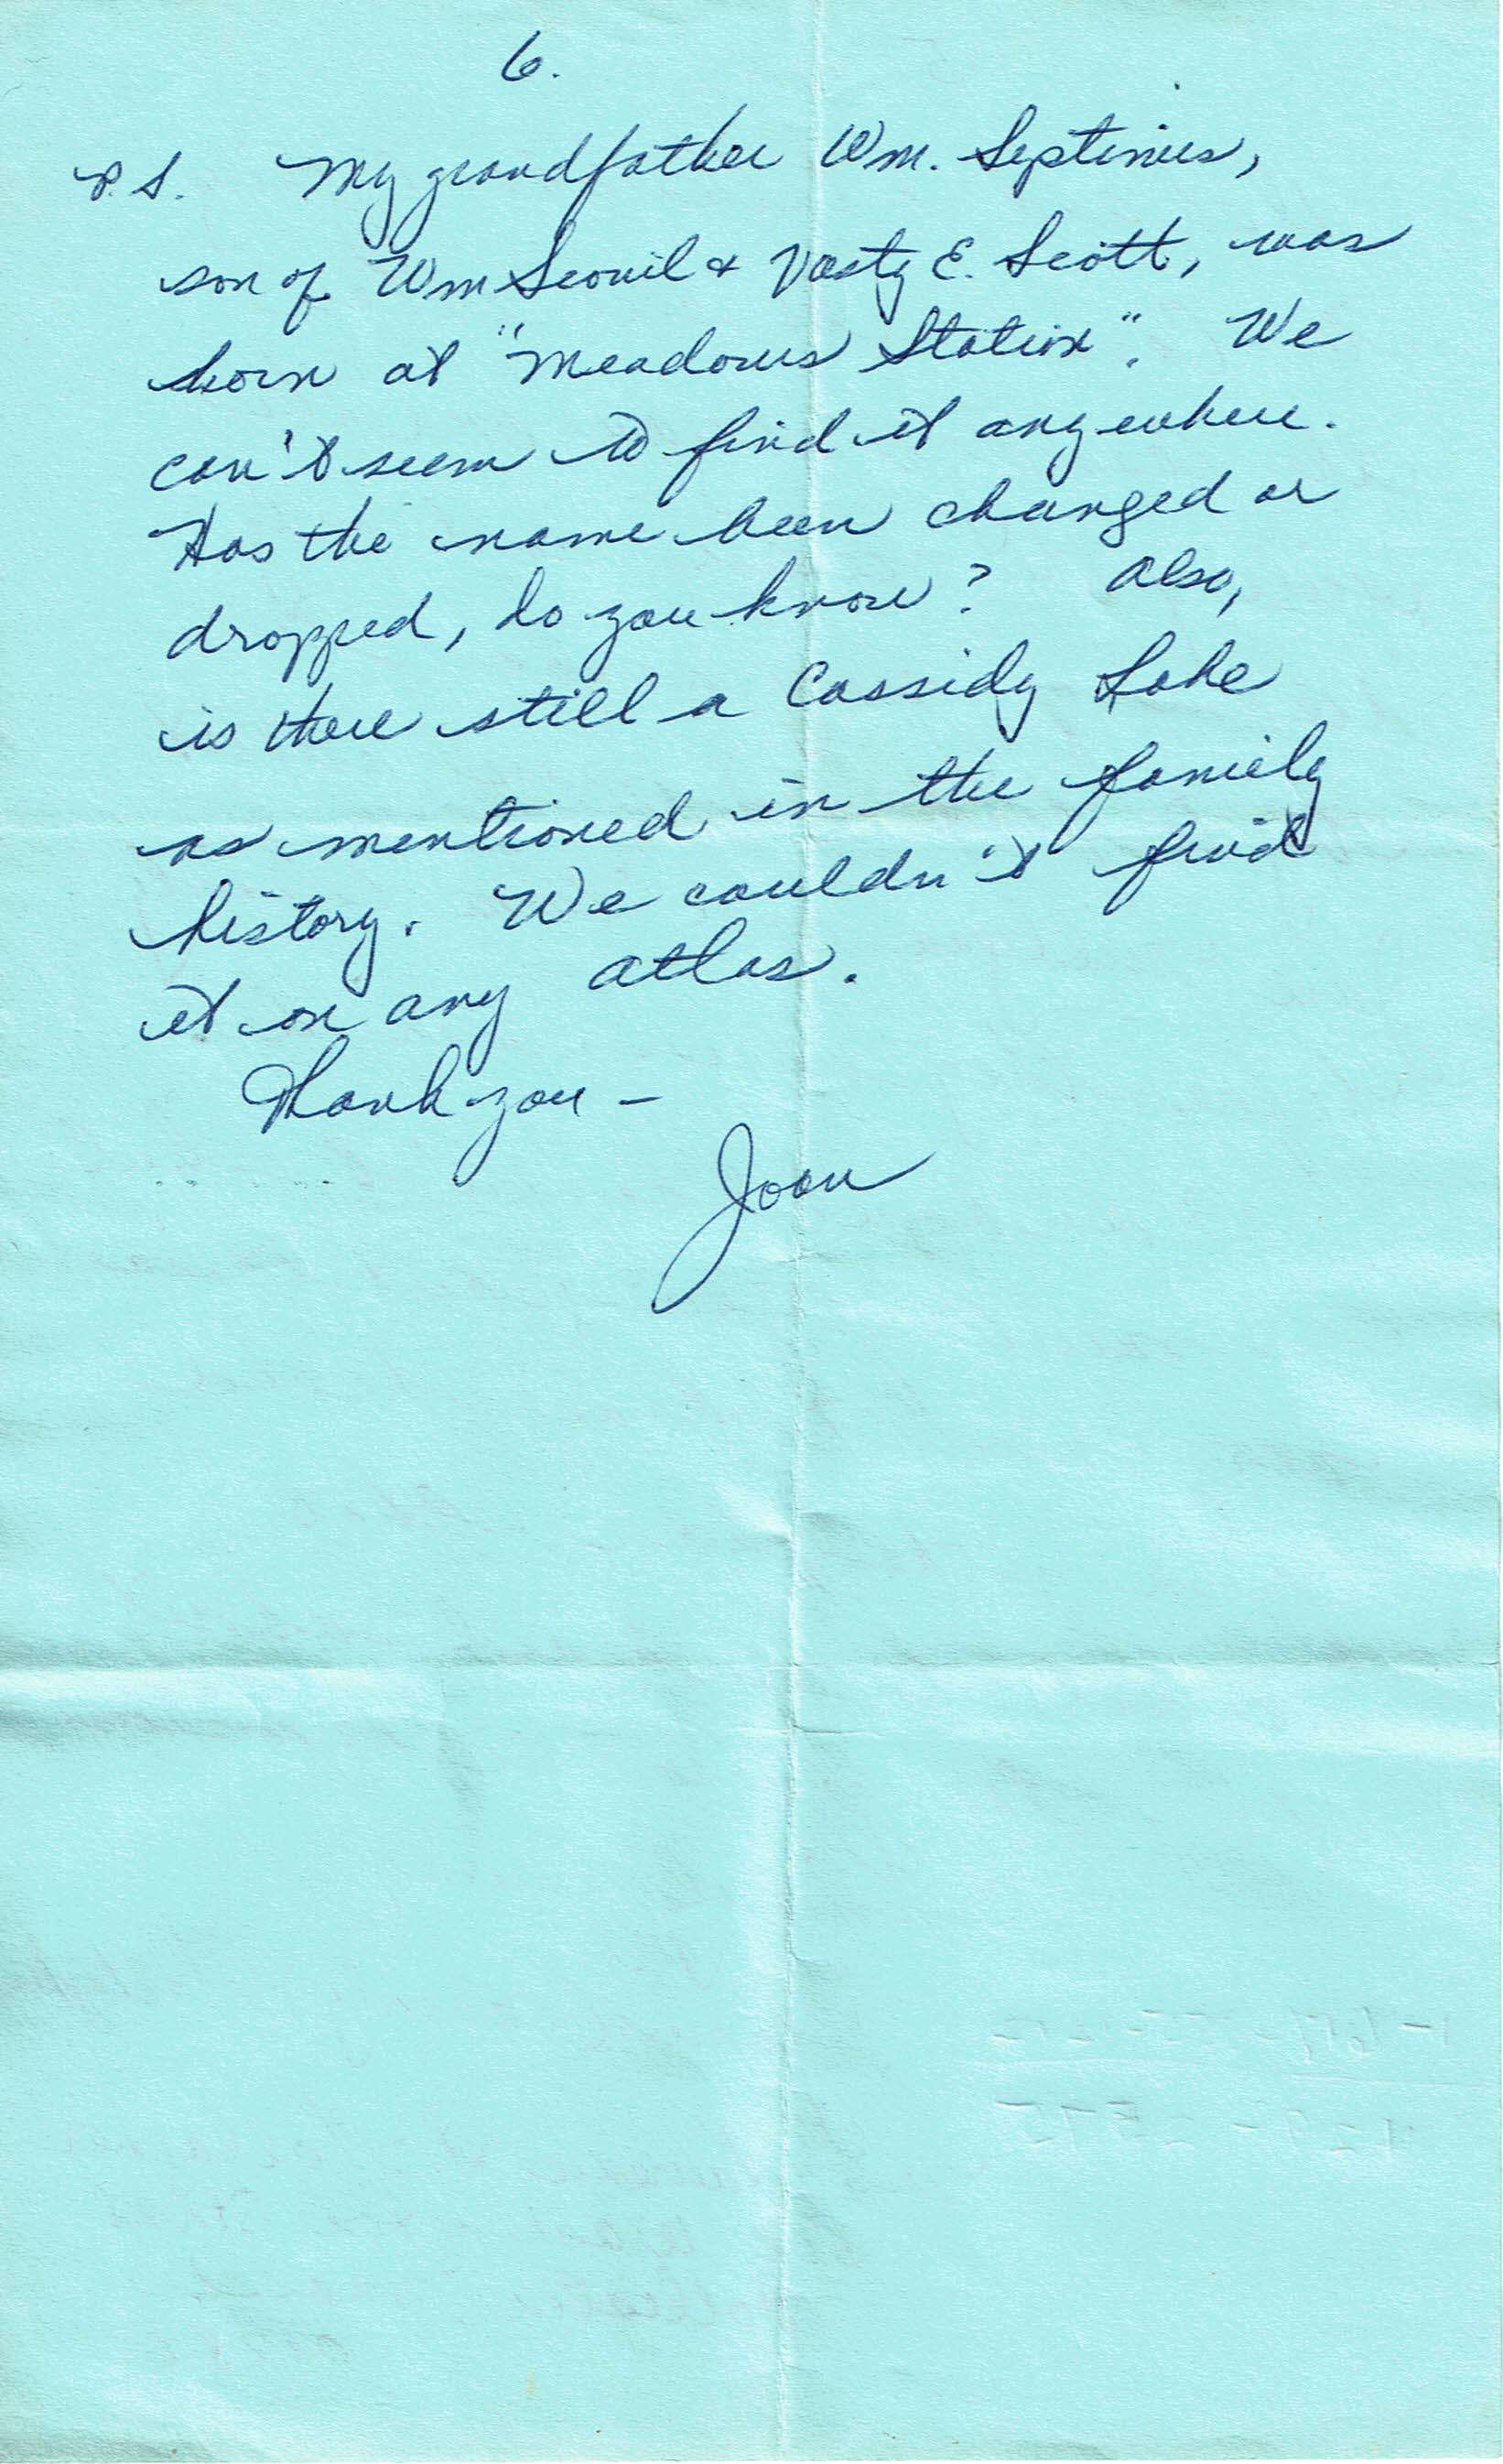 6.
P.S. My grandfather Wm. Septimus,
son of Wm Scovil & Vasty E. Scott, was
born at "Meadows Station". We
can't seem to find it anywhere.
Has the name been changed or
dropped, do you know? Also,
is there still a Cassidy Lake
as mentioned in the family
history. We couldn't find
it on any atlas.
Thank you –
Joan